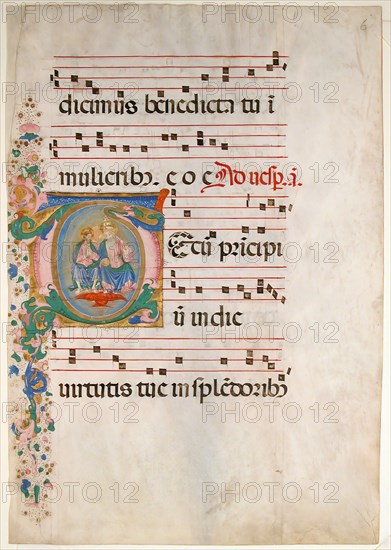 dicimus benedicta tu i
mulieribȝ. e o e Ad uesp̱. a.
Tecū principi
ū in die
uirtutis tue in splēdoribȝ
PHOTO 12 PHOTO 12 PHOTO 12